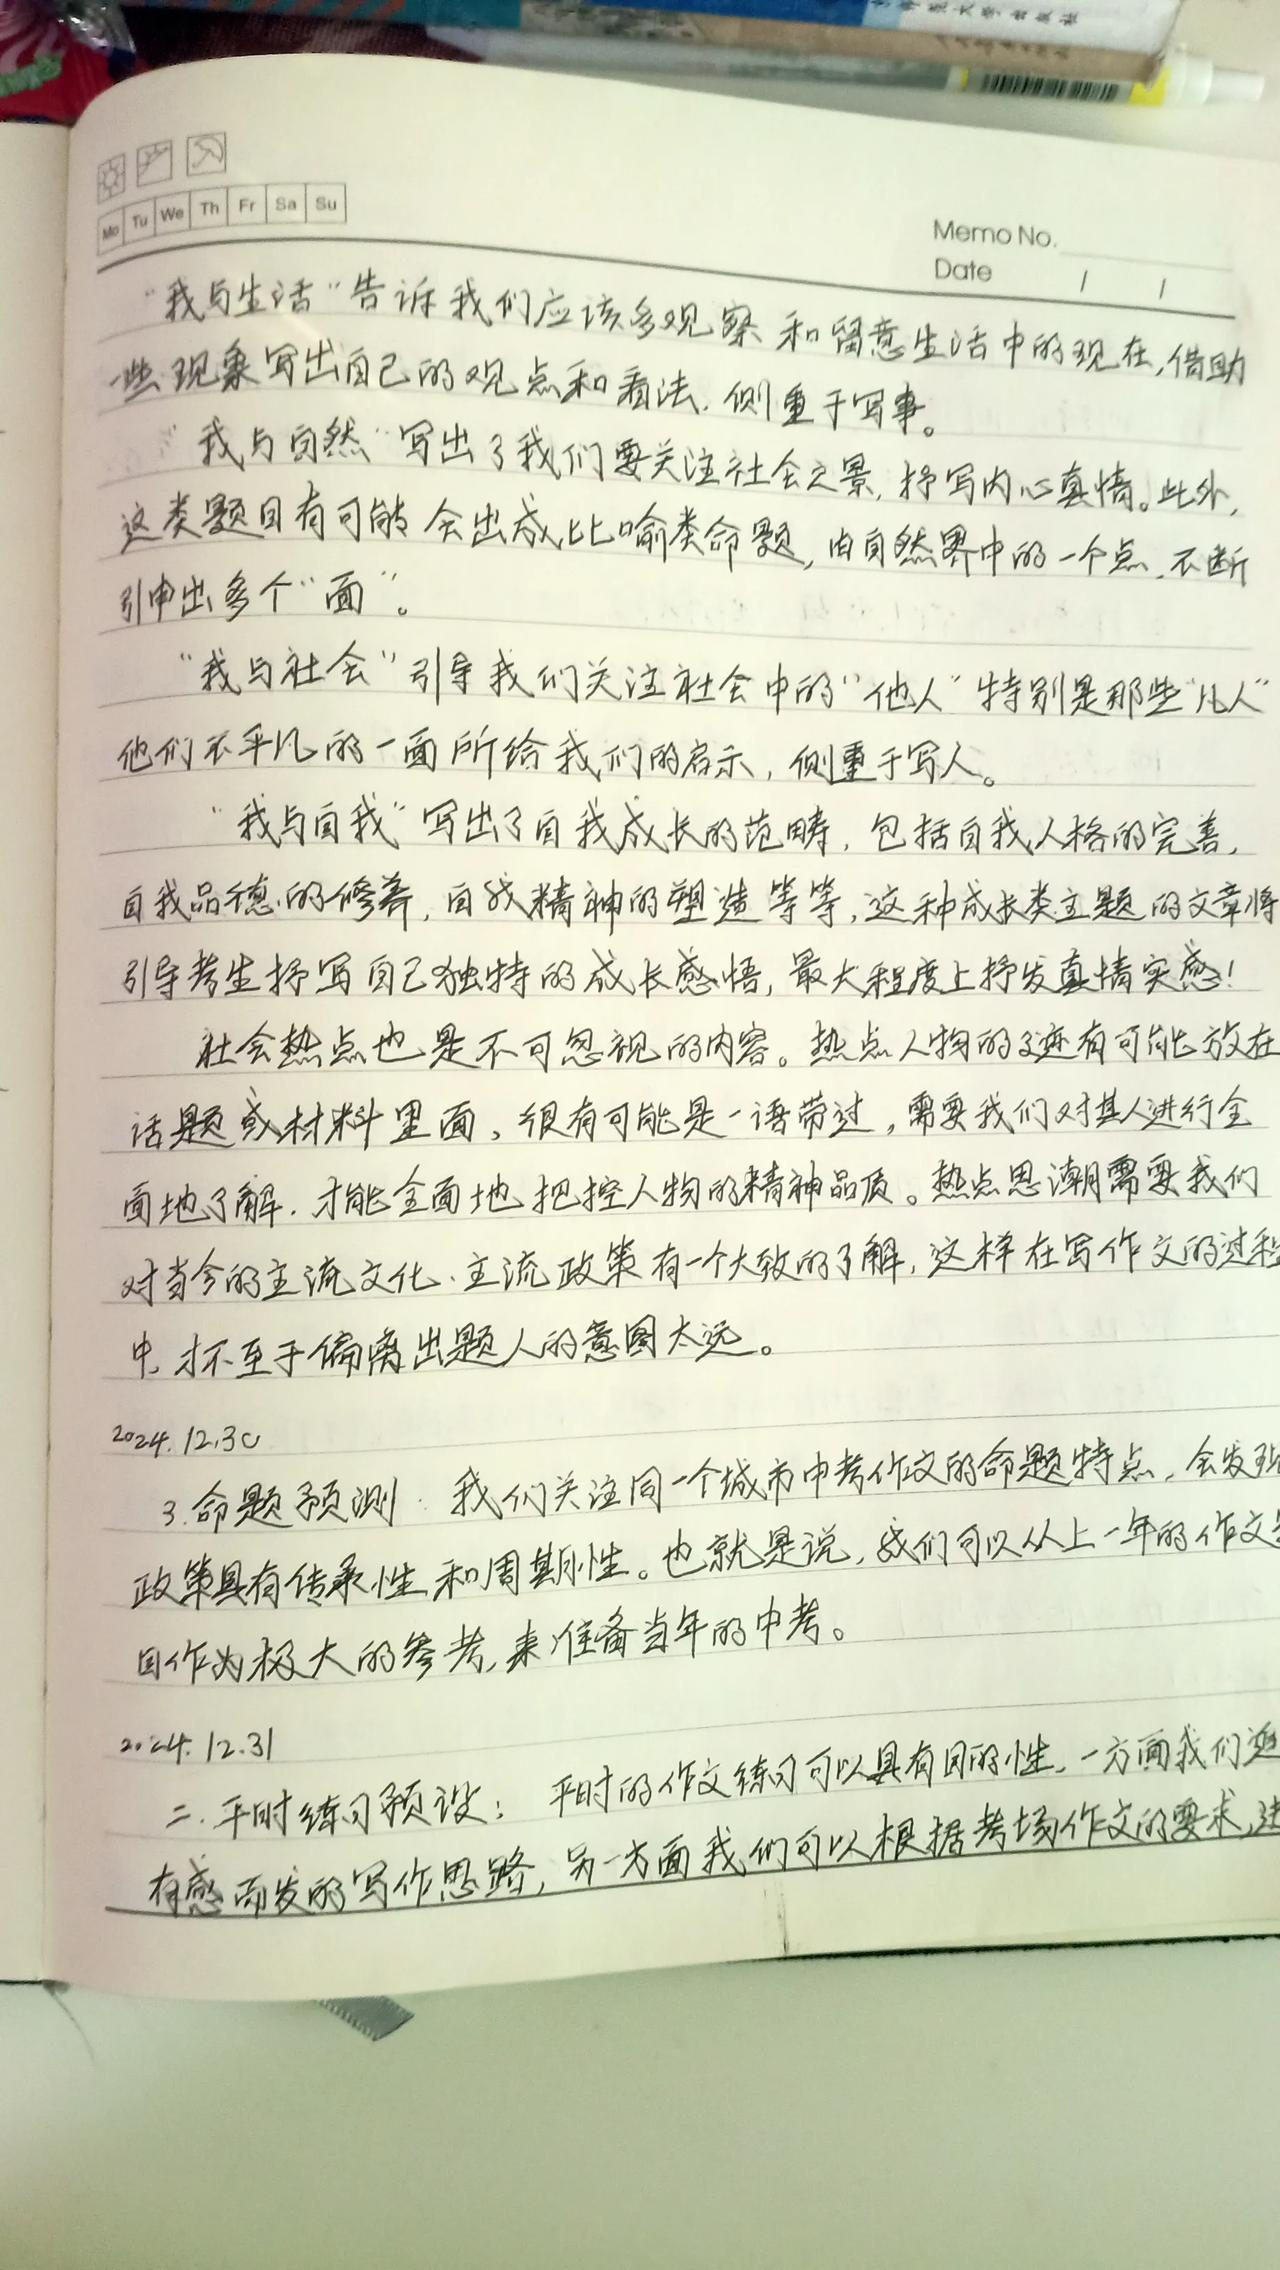 师范大学出版社
Mo Tu We Th Fr Sa Su
Memo No.
Date / /
“我与生活”告诉我们应该多观察和留意生活中的现在,借助
一些现象写出自己的观点和看法,侧重于写事。
“我与自然”写出了我们要关注社会之景,抒写内心真情。此外,
这类题目有可能会出成比喻类命题,由自然界中的一个点,不断
引申出多个“面”。
“我与社会”引导我们关注社会中的“他人”特别是那些“凡人”
他们不平凡的一面所给我们的启示,侧重于写人。
“我与自我”写出了自我成长的范畴,包括自我人格的完善,
自我品德的修养,自我精神的塑造等等,这种成长类主题的文章将
引导考生抒写自己独特的成长感悟,最大程度上抒发真情实感!
社会热点也是不可忽视的内容。热点人物的事迹有可能放在
话题或材料里面,很有可能是一语带过,需要我们对其人进行全
面地了解,才能全面地把控人物的精神品质。热点思潮需要我们
对当今的主流文化、主流政策有一个大致的了解,这样在写作文的过程
中,才不至于偏离出题人的意图太远。
2024.12.30
3.命题预测:我们关注同一个城市中考作文的命题特点,会发现
政策具有传承性和周期性。也就是说,我们可以从上一年的作文
目作为极大的参考,来准备当年的中考。
2024.12.31
二.平时练习预设:平时的作文练习可以具有目的性,一方面我们
有感而发的写作思路,另一方面我们可以根据考场作文的要求,